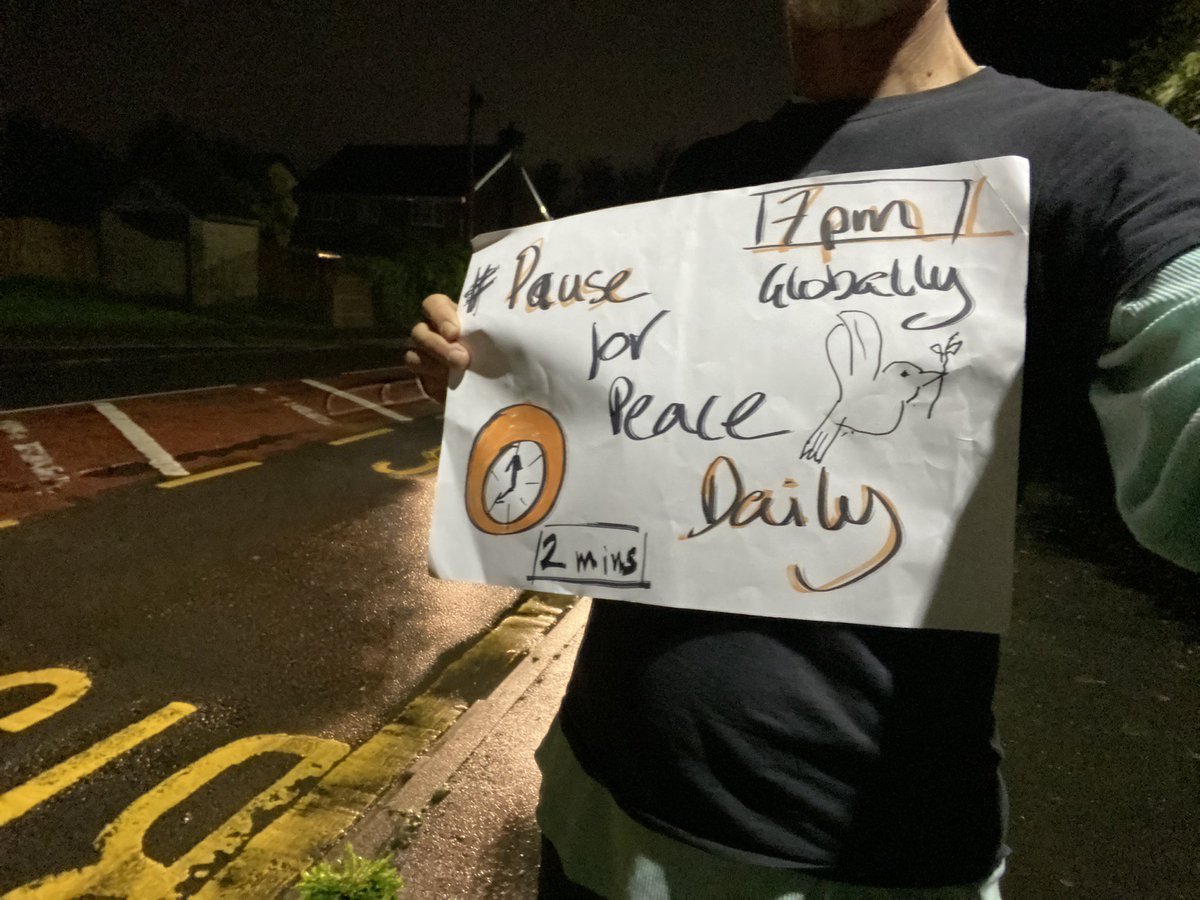 7pm
Globally
# Pause
for
Peace
Daily
2 mins